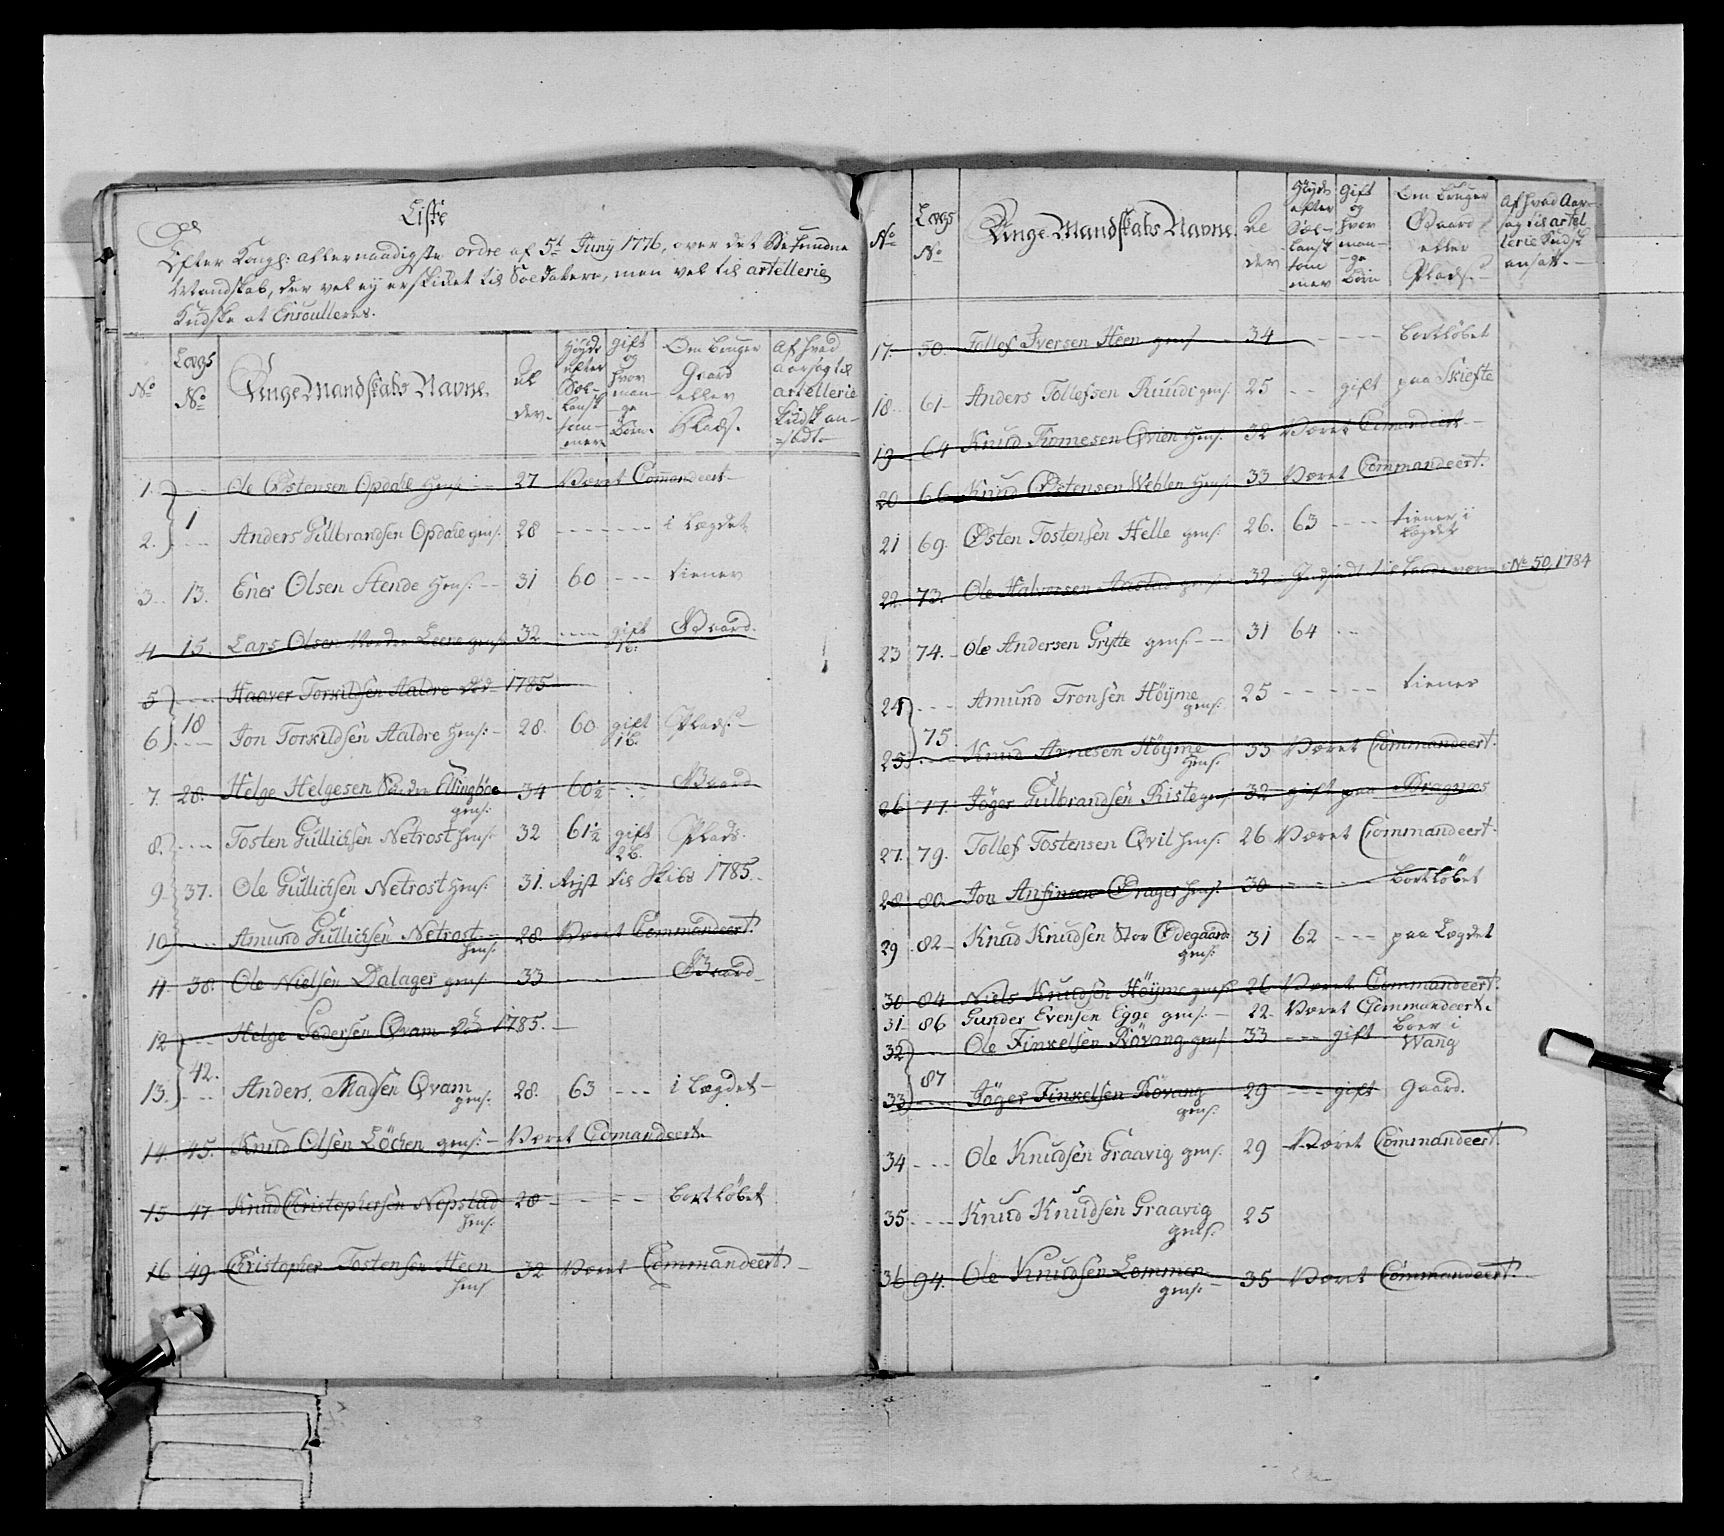 Liste
Efter Kongl: allernaadigste ordre af 5t Juny 1776, over det Befundne
Mandskab, der vel ey er skicket til Soldatere, men vel til artellerie
Kudske at Enroulleres.
No
Lægs No
Unge Mandskabs Navne
Al
der
Høyde
efter
Sæl-
landsk
tom-
mer
gift
og
hvor
man-
ge
Børn
Om bruger
Gaard
eller
Plads.
Af hvad
aarsag til
artellerie
Kudsk an-
sadt
1. Ole Østensen Opdahl gens: 27 Været Commandeert
1
2. Anders Gulbrandsen Opdahl gens: 28 i Lægdet
3. 13. Ener Olsen Stende gens: 31 60 tiener
4 15. Lars Olsen Leene gens: 32 gift 1b: Gaard.
5 Haaver Torkildsen Aaldre død 1785
18
6 Jon Torkildsen Aaldre gens: 28. 60 gift 1b. Plads
7. 28. Helge Helgesen Søndre Ellingbøe 34 60½ Gaard
gens:
8. Tosten Gullichsen Netrost gens: 32 61½ gift 2b. Plads.
9 37. Ole Gullichsen Netrost gens: 31. Reist til Skibs 1785.
10 Amund Gullichsen Netrost 28 Været Commandeert.
gens:
11. 38. Ole Nielsen Dalager gens: 33 Gaard
12 Helge Pedersen Qvam død 1785.
42.
13. Anders Madsen Qvam 28. 63 i Lægdet
gens:
14. 45. Knud Olsen Løchen gens: Været Comandeert.
15 47. Knud Christophersen Nepstad 28 bortløbet
gens:
16 49. Christopher Tostensen Heen 32 Været Commandeert.
gens
No
Lægs No
Unge Mandskabs Navne.
Al
der
Høyde
efter
Sæl-
landsk
tom
mer
gift
og
hvor
man-
ge
Børn
Om bruger
Gaard
eller
Plads.
Af hvad Aar-
sag til artel
lerie Kudsk
ansatt.
17. 50. Tollef Iversen Heen gens 34 bortløbet
18. 61 Anders Tollefsen Ruudi gens: 25 gift paa Skifte
19 64 Knud Qvien gens: 32 Været Comandeert
20 66 Knud Østensen Weblen gens: 33 Været Commandeert.
21 69. Østen Tostensen Helle gens: 26. 63 tiener i
Lægdet
22. 73. Ole Halvorsen gens: 32 til No 50, 1784
23 74. Ole Andersen Grytte gens: 31 64
24 Amund Tronsen Høyme 25 tiener
gens:
75.
25 Knud Arnesen Høyme 33 Været Commandeert.
gens:
26 77. Jøger Gulbrandsen Riste gens 32 gift paa Dragnæs
27. 79. Tollef Tostensen Qvil gens: 26 Været Commandeert.
28. 80. Jon Anfinsen gens: 30 bortløbet
29 82 Knud Knudsen Stor Ødegaard 31 62 paa Lægdet
gens:
30 84 Niels Knudsen Høyme gens: 26 Været Commandeert.
31 86 Gunder Evensen Egge gens: 22. Været Commandeert.
32 Ole Finkelsen Røvang gens: 33 gift boer i
Wang
87
33 Jøger Finkelsen Røvang 29 gift Gaard.
gens:
34 Ole Knudsen Graavig gens: 29 Været Commandeert.
35 Knud Knudsen Graavig 25
gens:
36 94. Ole Knudsen Lommen 35 Været Commandeert.
gens: